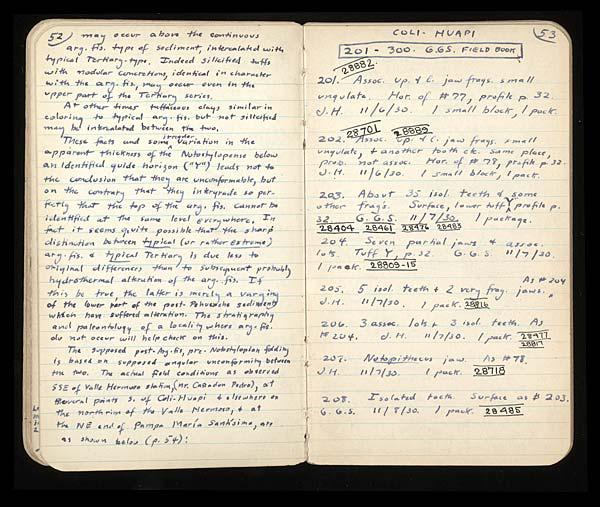 52
may occur above the continuous
arg. fis. type of sediment, intercalated with
typical Tertiary-type. Indeed silicified tuffs
with nodular concretions, identical in character
with the arg. fis, may occur even in the
upper part of the Tertiary series.
At other times tuffaceous clays similar in
coloring to typical arg. fis. but not silicified
may be intercalated between the two.
These facts and some irregular variation in the
apparent thickness of the Notostylopense below
an identified guide horizon ("Y") leads not to
the conclusion that they are unconformable, but
on the contrary that they intergrade so per-
fectly that the top of the arg. fis. cannot be
identified at the same level everywhere. In
fact it seems quite possible that the sharp
distinction between typical (or rather extreme)
arg. fis. & typical Tertiary is due less to
original differences than to subsequent probably
hydrothermal alteration of the arg. fis. If
this be true the latter is merely a varying
of the lower part of the post-Pehuenche sediments
which have suffered alteration. The stratigraphy
and paleontology of a locality where arg. fis.
do not occur will help check on this.
The supposed post-Arg. fis, pre-Notostylopian folding
is based on supposed angular unconformity between
the two. The actual field conditions as observed
SSE of Valle Hermoso station, (nr. Cañadon Pedro), at
several points S. of Coli-Huapi & elsewhere on
the north rim of the Valle Hermoso, & at
the NE end of Pampa María Santísima, are
as shown below (p. 54):
53
COLI-HUAPI
201 - 300. G.G.S. FIELD BOOK
28882
201. Assoc. up. & l. jaw frags. small
ungulate. Hor. of #77, profile p. 32.
J.H. 11/6/30. 1 small block, 1 pack.
28701 28889
202. Assoc. up. & l. jaw frags. small
ungulate, & another tooth etc. Same place,
prob. not assoc. Hor. of #78, profile p. 32.
J.H. 11/6/30. 1 small block, 1 pack.
203. About 35 isol. teeth & some
other frags. Surface, lower tuff Y, profile p.
32. G.G.S. 11/7/30. 1 package.
28404 28461 28476 28483
204. Seven partial jaws & assoc.
lots. Tuff Y, p. 32. G.G.S. 11/7/30.
1 pack. 28809-15
205. 5 isol. teeth & 2 very frag. jaws. As #204
J.H. 11/7/30. 1 pack. 28816
206. 3 assoc. lots & 3 isol. teeth. As
#204. J.H. 11/7/30. 1 pack. 28477
28817
207. Notopithecus jaw. As #78.
J.H. 11/7/30. 1 pack. 28718
208. Isolated tooth Surface as #203.
G.G.S. 11/8/30. 1 pack. 28485